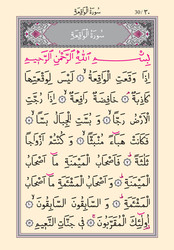 سُورَةُ الْوَاقِعَةِ
30/٣٠
سُورَةُ الْوَاقِعَةِ
بِسْمِ اللّٰهِ الرَّحْمٰنِ الرَّحِيمِ
اِذَا وَقَعَتِ الْوَاقِعَةُ ۝ لَيْسَ لِوَقْعَتِهَا
كَاذِبَةٌ ۝ خَافِضَةٌ رَافِعَةٌ ۝ اِذَا رُجَّتِ
الْاَرْضُ رَجًّا ۝ وَبُسَّتِ الْجِبَالُ بَسًّا ۝
فَكَانَتْ هَبَاءً مُنْبَثًّا ۝ وَكُنْتُمْ اَزْوَاجًا
ثَلٰثَةً ۝ فَاَصْحَابُ الْمَيْمَنَةِ مَا اَصْحَابُ
الْمَيْمَنَةِ ۝ وَاَصْحَابُ الْمَشْـَٔمَةِ مَا اَصْحَابُ
الْمَشْـَٔمَةِ ۝ وَالسَّابِقُونَ السَّابِقُونَ ۝
اُولٰئِكَ الْمُقَرَّبُونَ ۝ فِي جَنَّاتِ النَّعِيمِ ۝